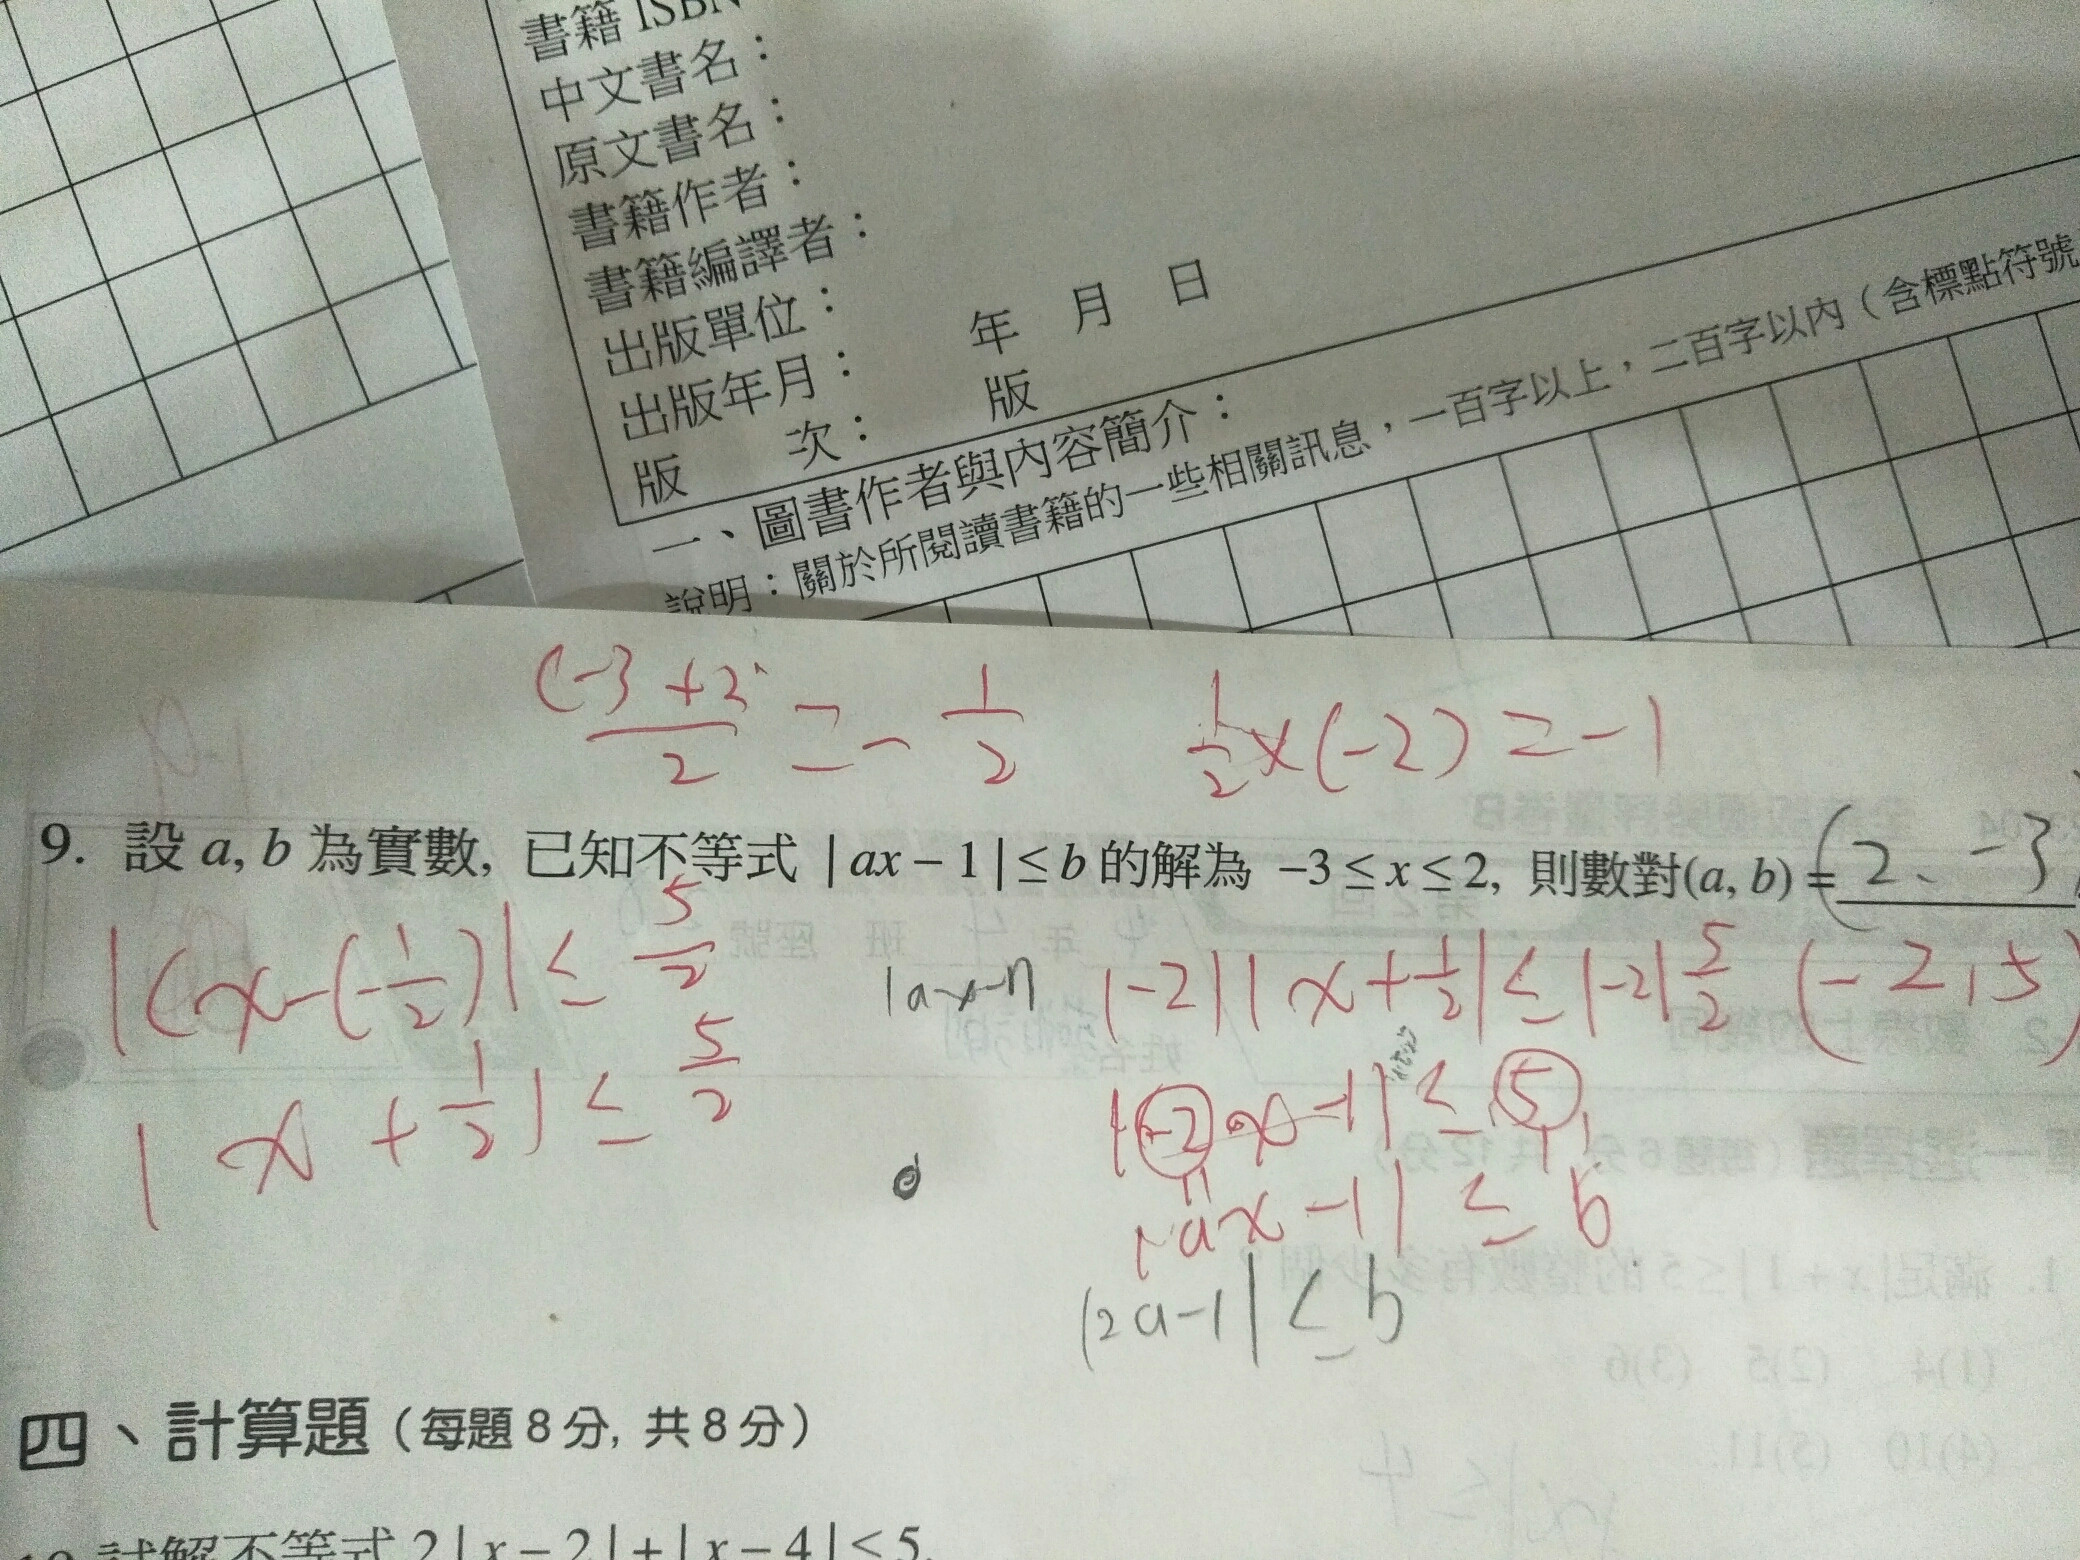 書籍 ISBN
中文書名：
原文書名：
書籍作者：
書籍編譯者：
出版單位：
出版年月： 年 月 日
版 次： 版
一、圖書作者與內容簡介：
說明：關於所閱讀書籍的一些相關訊息，一百字以上，二百字以內（含標點符號
(-3+2 / 2 = -1/2
1/2×(-2)=-1
9. 設 a, b 為實數, 已知不等式 | ax − 1 | ≤ b 的解為 −3 ≤ x ≤ 2, 則數對(a, b) = (2、-3
|(x-(-1/2)| ≤ 5/2
|ax-1|
|-2||x+1/2| ≤ |-2|5/2
(-2,5)
|x+1/2| ≤ 5/2
|-2·x-1| ≤ 5
|ax-1| ≤ b
|2a-1| ≤ b
四、計算題（每題 8 分, 共 8 分）
試解不等式 2 | x − 2 | + | x − 4 | < 5.